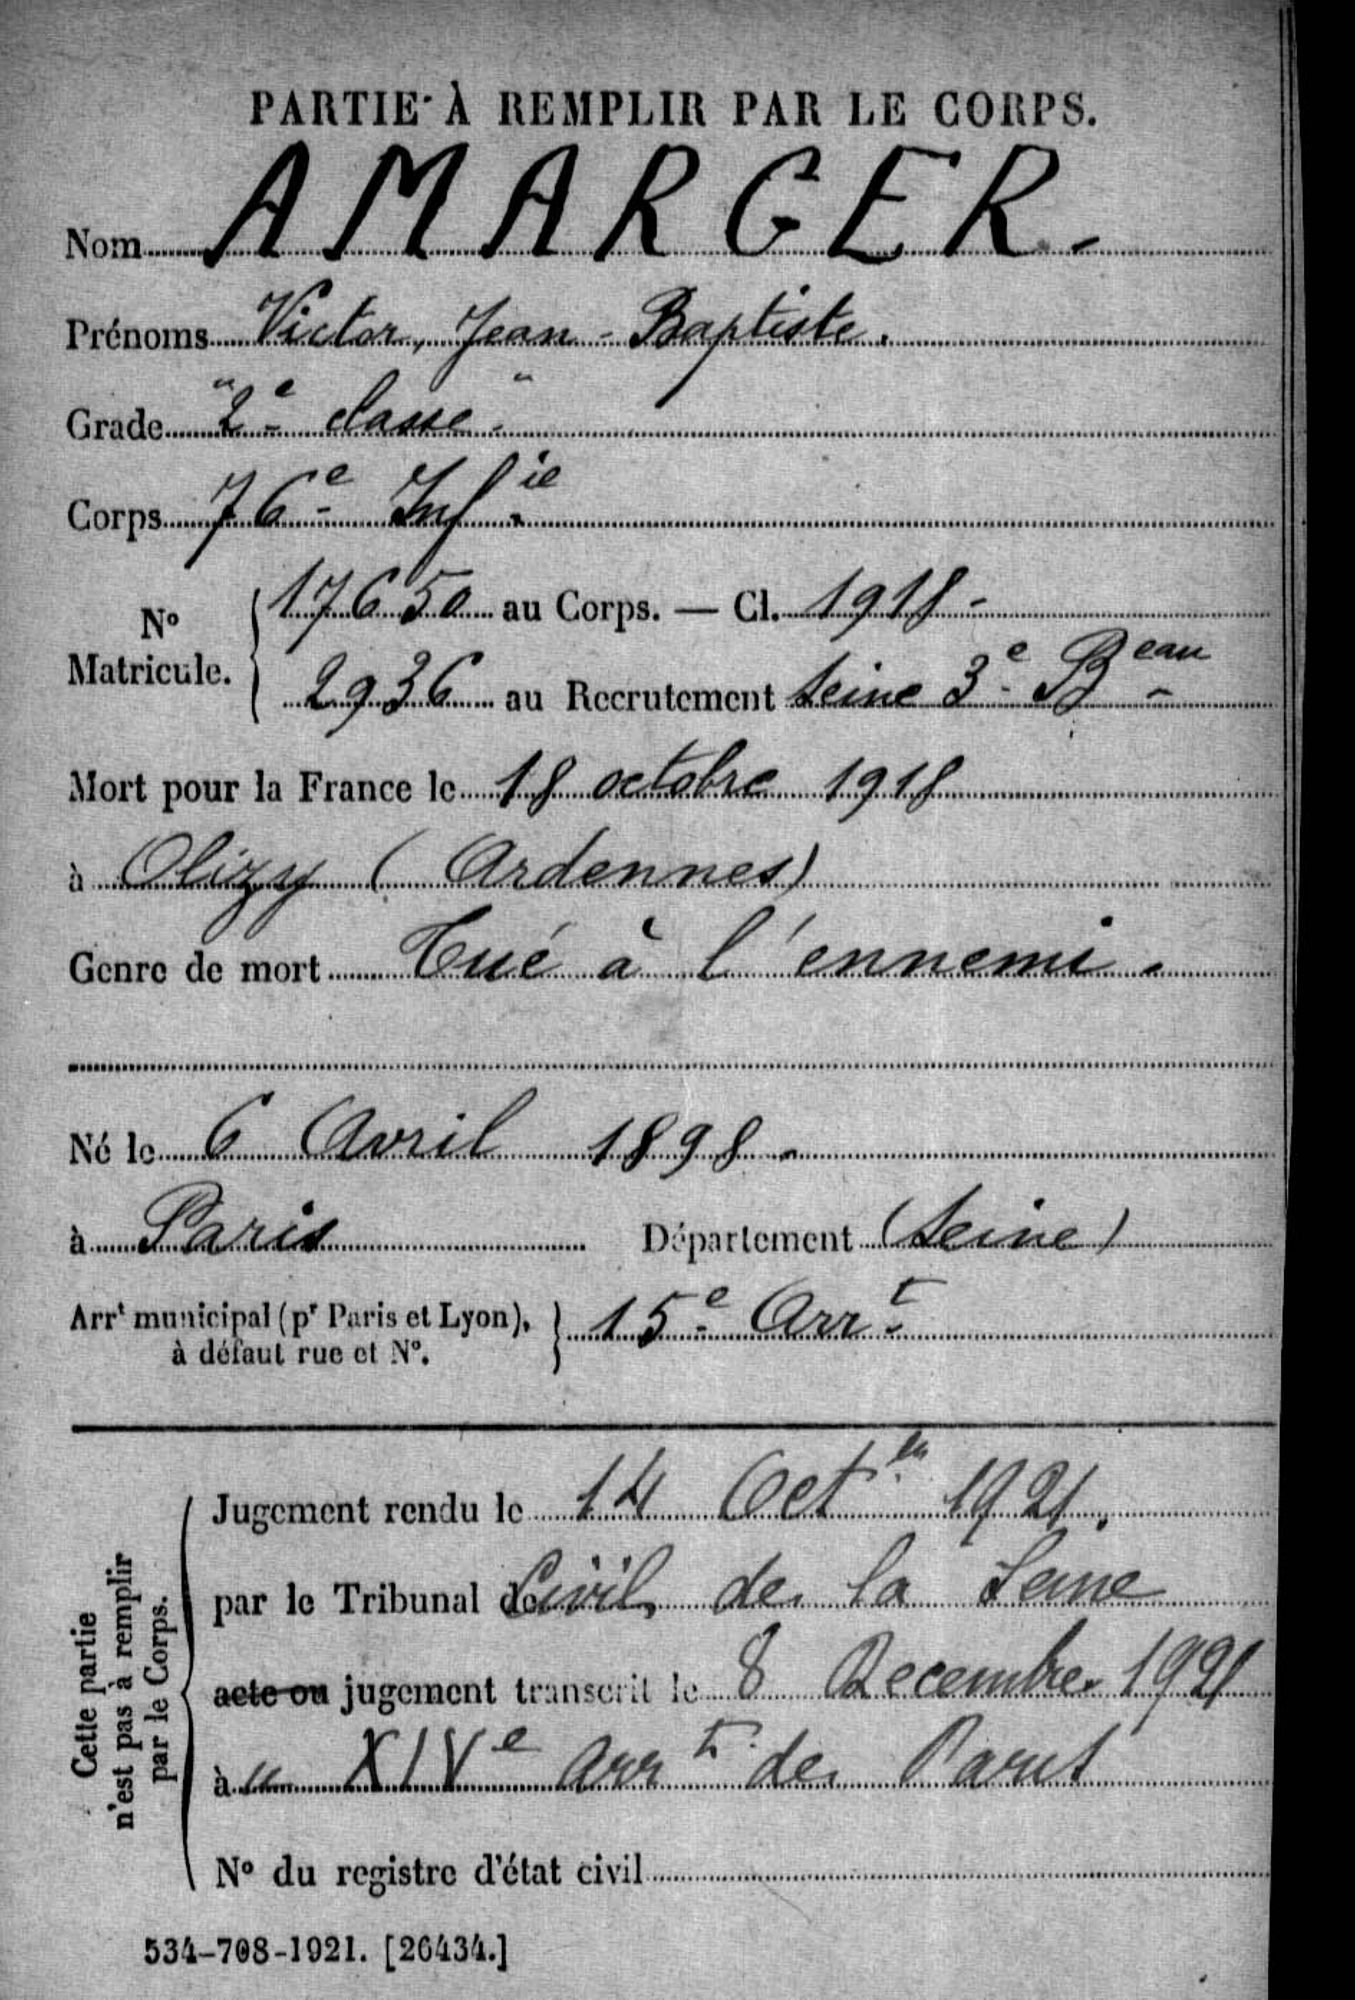 PARTIE À REMPLIR PAR LE CORPS.
Nom AMARGER.
Prénoms Victor, Jean-Baptiste.
Grade "2e classe."
Corps 76e Infie
No Matricule. { 17650 au Corps. — Cl. 1918
2936 au Recrutement Seine 3e Beau
Mort pour la France le 18 octobre 1918
à Olizy (Ardennes)
Genre de mort Tué à l'ennemi.
Né le 6 Avril 1898.
à Paris Département (Seine)
Arrt municipal (pr Paris et Lyon), } 15e Arrt
à défaut rue et No.
Cette partie
n'est pas à remplir
par le Corps.
Jugement rendu le 14 Octbre 1921.
par le Tribunal de Civil de la Seine
acte ou jugement transcrit le 8 Decembre 1921
à u XIVe Arrt de Paris
No du registre d'état civil
534-708-1921. [26434.]